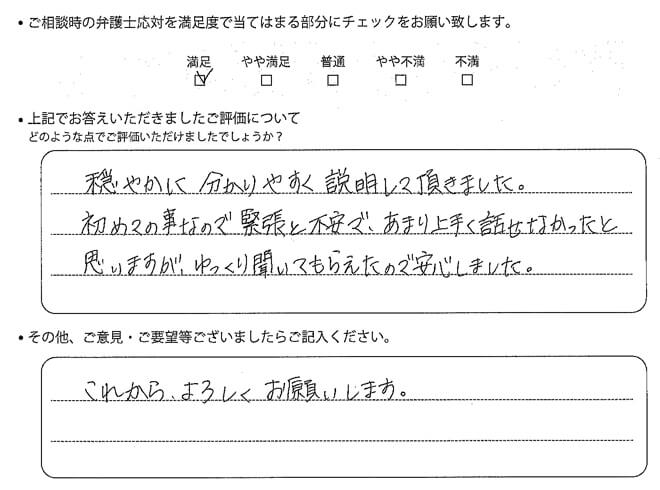 ・ご相談時の弁護士応対を満足度で当てはまる部分にチェックをお願い致します。
満足 やや満足 普通 やや不満 不満
・上記でお答えいただきましたご評価について
どのような点でご評価いただけましたでしょうか？
穏やかに分かりやすく説明して頂きました。
初めての事なので緊張と不安で、あまり上手く話せなかったと
思いますが、ゆっくり聞いてもらえたので安心しました。
・その他、ご意見・ご要望等ございましたらご記入ください。
これから、よろしくお願いします。